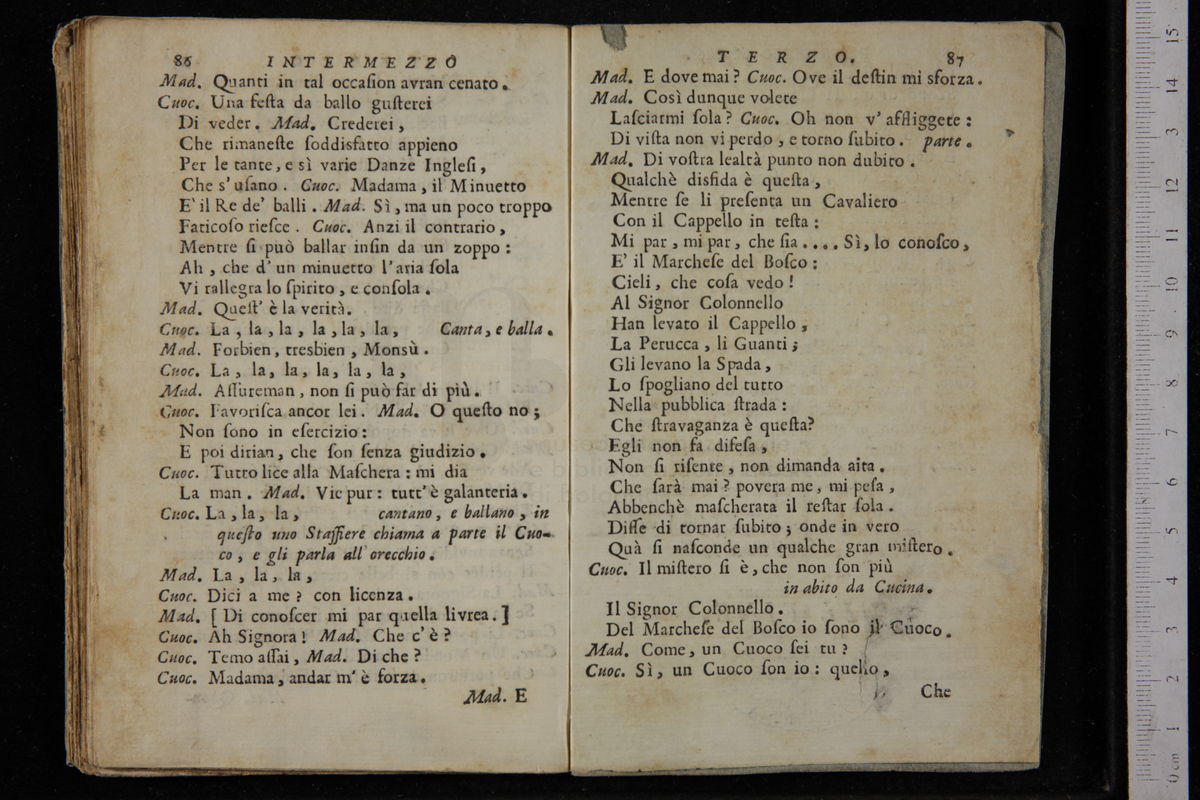 86 INTERMEZZO
Mad. Quanti in tal occaſion avran cenato.
Cuoc. Una feſta da ballo guſterei
Di veder. Mad. Crederei,
Che rimaneſte ſoddisfatto appieno
Per le tante, e sì varie Danze Ingleſi,
Che s' uſano. Cuoc. Madama, il Minuetto
E' il Re de' balli. Mad. Sì, ma un poco troppo
Faticoſo rieſce. Cuoc. Anzi il contrario,
Mentre ſi può ballar inſin da un zoppo:
Ah, che d' un minuetto l' aria ſola
Vi rallegra lo ſpirito, e conſola.
Mad. Queſt' è la verità.
Cuoc. La, la, la, la, la, la, Canta, e balla.
Mad. Forbien, tresbien, Monsù.
Cuoc. La, la, la, la, la, la,
Mad. Aſſureman, non ſi può far di più.
Cuoc. Favoriſca ancor lei. Mad. O queſto no;
Non ſono in eſercizio:
E poi dirian, che ſon ſenza giudizio.
Cuoc. Tutto lice alla Maſchera: mi dia
La man. Mad. Vie pur: tutt' è galanteria.
Cuoc. La, la, la, cantano, e ballano, in
queſto uno Staffiere chiama a parte il Cuo-
co, e gli parla all' orecchio.
Mad. La, la, la,
Cuoc. Dici a me? con licenza.
Mad. [Di conoſcer mi par quella livrea.]
Cuoc. Ah Signora! Mad. Che c' è?
Cuoc. Temo aſſai, Mad. Di che?
Cuoc. Madama, andar m' è forza.
Mad. E
TERZO. 87
Mad. E dove mai? Cuoc. Ove il deſtin mi sforza.
Mad. Così dunque volete
Laſciarmi ſola? Cuoc. Oh non v' affliggete:
Di viſta non vi perdo, e torno ſubito. parte.
Mad. Di voſtra lealtà punto non dubito.
Qualchè disfida è queſta,
Mentre ſe li preſenta un Cavaliero
Con il Cappello in teſta:
Mi par, mi par, che ſia.... Sì, lo conoſco,
E' il Marcheſe del Boſco:
Cieli, che coſa vedo!
Al Signor Colonnello
Han levato il Cappello,
La Perucca, li Guanti;
Gli levano la Spada,
Lo ſpogliano del tutto
Nella pubblica ſtrada:
Che ſtravaganza è queſta?
Egli non fa difeſa,
Non ſi riſente, non dimanda aita.
Che ſarà mai? povera me, mi peſa,
Abbenchè maſcherata il reſtar ſola.
Diſſe di tornar ſubito; onde in vero
Quà ſi naſconde un qualche gran miſtero.
Cuoc. Il miſtero ſi è, che non ſon più
in abito da Cucina.
Il Signor Colonnello.
Del Marcheſe del Boſco io ſono il Cuoco.
Mad. Come, un Cuoco ſei tu?
Cuoc. Sì, un Cuoco ſon io: quello,
Che
15
14
3
12
11
10
9
8
7
6
5
4
3
2
1
0 cm